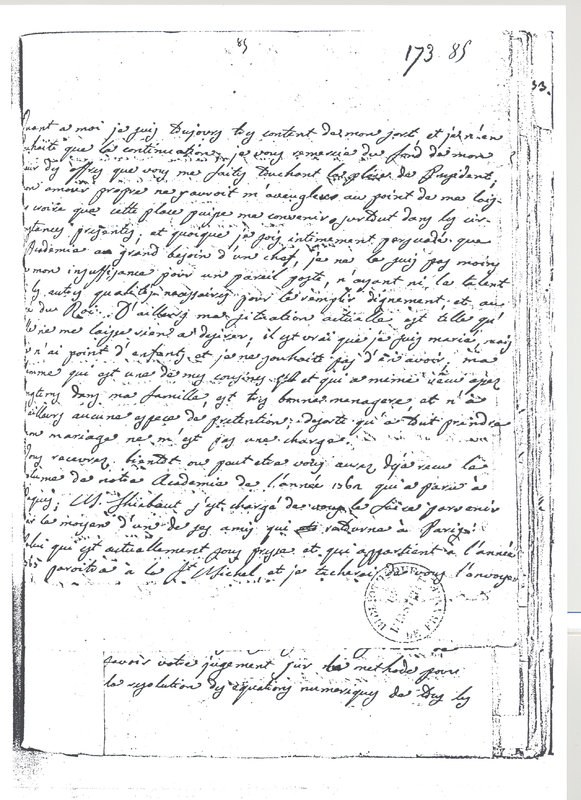 85
173 85
33.
quant a moi je suis toujours tres content de mon sort et je n'en
souhaite que la continuation, je vous remercie du fond de mon
cœur des offres que vous me faites touchant la place de President,
mon amour propre ne sauroit m'aveugler au point de me lais-
ser croire que cette place puisse me convenir surtout dans les cir-
constances presentes, et quoique je sois intimement persuadé que
l'Academie a grand besoin d'un chef, je ne le suis pas moins
de mon insuffisance pour un pareil poste, n'ayant ni le talent
ni les autres qualités necessaires pour le remplir dignement et au
gré du Roi. D'ailleurs ma situation actuelle est telle qu'
elle ne me laisse rien a desirer, il est vrai que je suis marié, mais
je n'ai point d'enfants, et je ne souhaite pas d'en avoir, ma
femme qui est une de mes cousines et qui a meme vecu assez
longtems dans ma famille est tres bonne menagere et n'a
d'ailleurs aucune espece de pretention desorte qu'a tout prendre
mon mariage ne m'est pas une charge.
Vous recevrez bientot ou peut etre vous avez deja reçu le
volume de notre Academie de l'année 1762 qui a paru à
Paques; M. Thiebaut s'est chargé de vous le faire parvenir
par le moyen d'un de ses amis qui retourne à Paris.
Celui qui est actuellement sous presse et qui appartient à l'année
1763 paroitra à la St. Michel et je tacherai de vous l'envoyer
savoir votre jugement sur ma methode pour
la resolution des equations numeriques de tous les